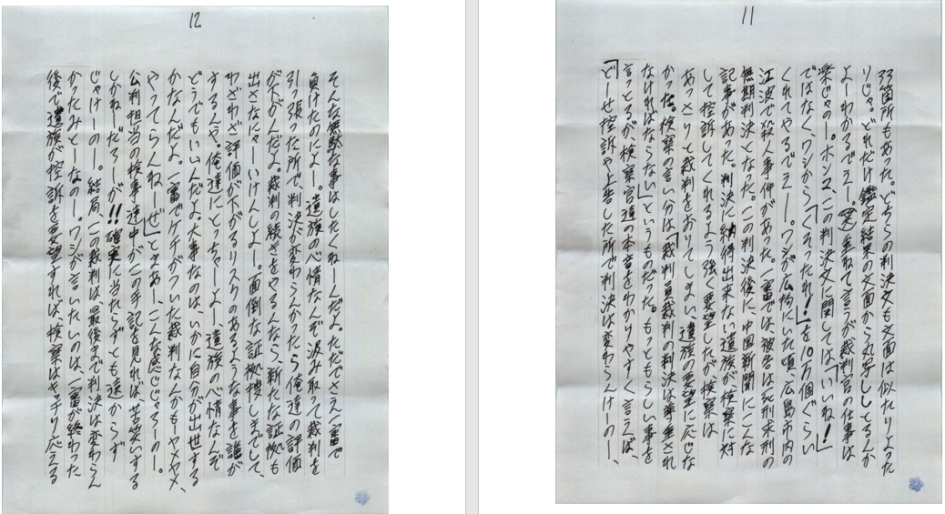 11
33箇所もあった。どちらの判決文も文面は似たりよった
りじゃ。どれだけ鑑定結果の文面から丸写ししとるんか
よーわかるでえー。(笑)重ねて言うが裁判官の仕事は
楽じゃのー。ホンマ、この判決文に関しては「いいね!」
ではなく、ワシから「くそったれ!」を10万個ぐらい
くれてやるでえー。ワシが広拘にいた頃、広島市内の
江波で殺人事件があった。一審では被告は死刑求刑の
無期判決となった。この判決後に、中国新聞にこんな
記事があった。判決に納得出来ない遺族が、検察に対
して控訴してくれるよう強く要望したが、検察は
あっさりと裁判をおりてしまい、遺族の要望に応じな
かった。検察の言い分は「裁判員裁判の判決は尊重され
なければならない」というものだった。もっともらしい事を
言っとるが、検察官達の本音をわかりやすく言うと、
「どーせ控訴や上告した所で判決は変わらんけーのー、
12
そんな無駄な事はしたくねーんだよ。ただでさえ一審で
負けたのによー。遺族の心情なんぞ汲み取って裁判を
引っ張った所で、判決が変わらんかったら俺達の評価
が下がんだよ。裁判の続きをやるんなら、新たな証拠も
出さなにゃーいけんしよー。面倒な証拠捜しまでして、
わざわざ評価が下がるリスクのあるような事を誰が
するんや。俺達にとっちゃーよー、遺族の心情なんぞ
どうでもいいんだよ。大事なのは、いかに自分が出世する
かなんだよ。一審でケチがついた裁判なんかもーヤメヤメ、
やってらんねーぜ」とまあー、こんな感じじゃろーのー。
公判担当の検事達中がこの手記を見れば、苦笑いする
しかねーだろーが!!確実に当たらずとも遠からず
じゃけーのー。結局、この裁判は、最後まで判決は変わらん
かったみとーなのー。ワシが言いたいのは、一審が終わった
後で遺族が控訴を要望すれば、検察はキッチリ応える